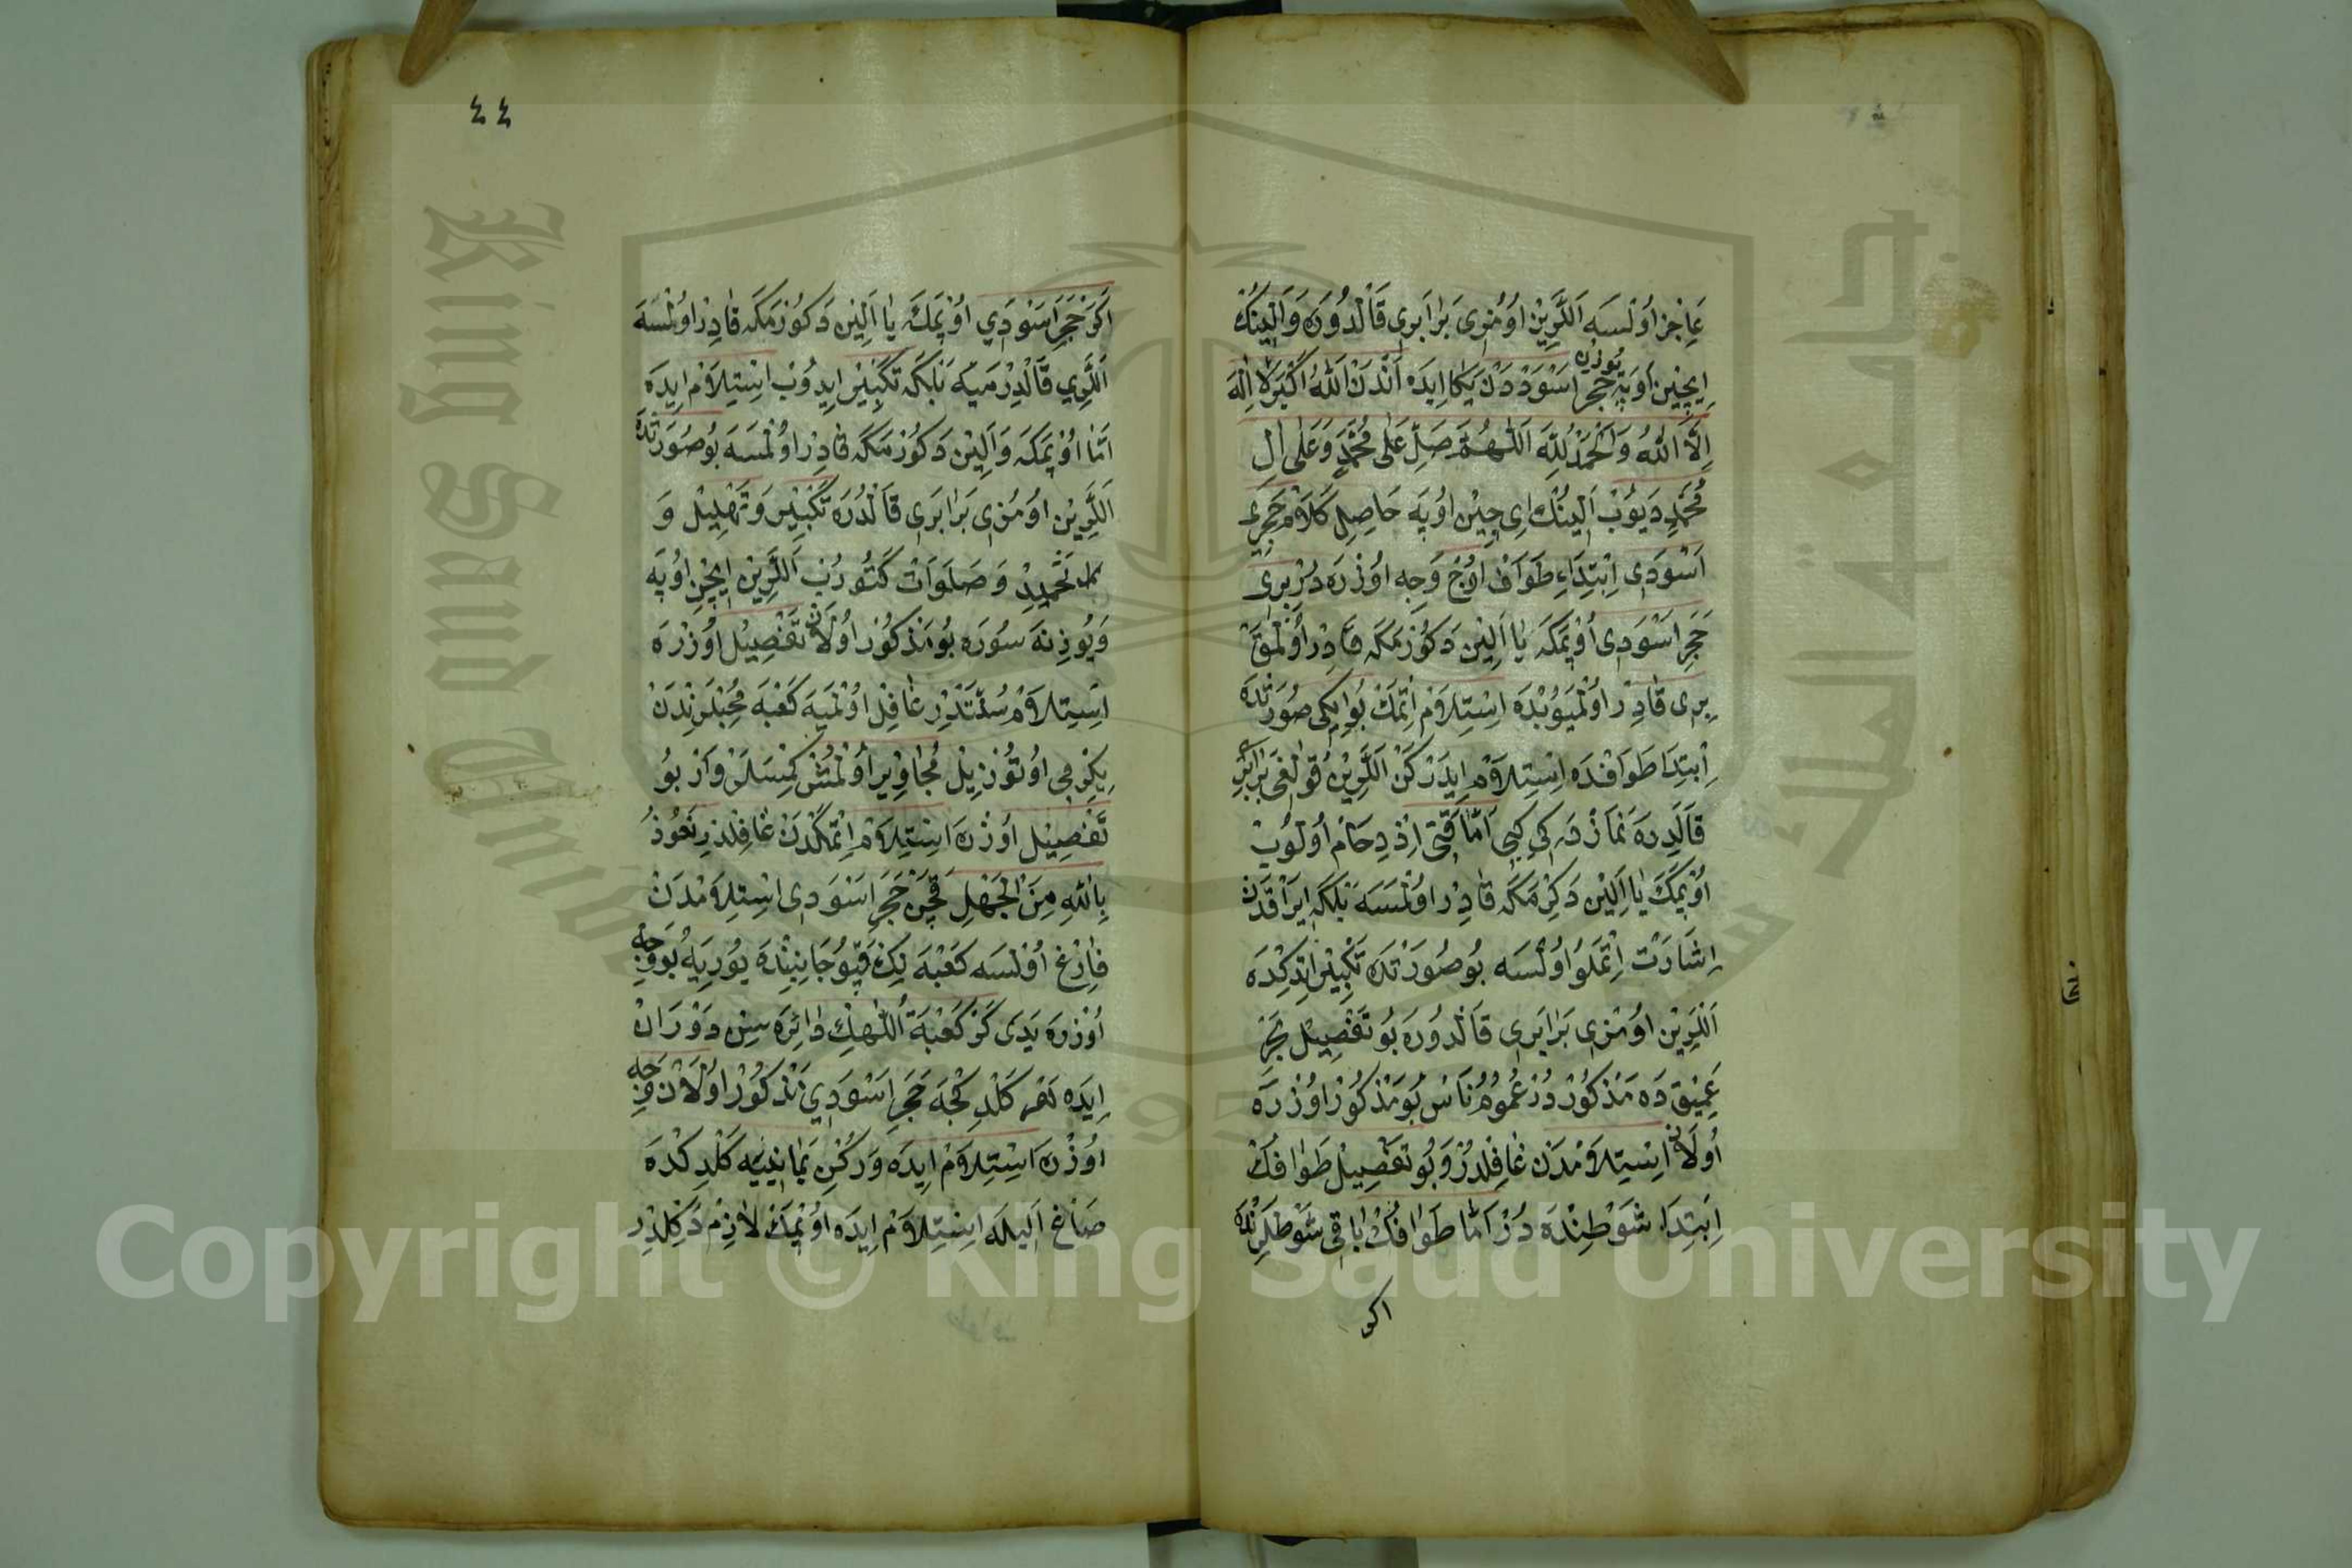 عَاجِز اُولْسَه اَللَّرِيْن اوُمُزِى بَرَابَرِى قَالْدُورَه وَاَلِينُكْ
اِيچِيْن اُوپَه حَجَرِ اَسْوَدْدَنْ يَكَا اِيدَه اَنْدَنْ اَللهُ اَكْبَر لَا اِلٰهَ
يُوزِنِ
اِلَّا اللهُ وَالْحَمْدُ لِلّٰهِ اَللّٰهُمَّ صَلِّ عَلٰى مُحَمَّدٍ وَعَلٰى اٰلِ
مُحَمَّدٍ دَيُوْبْ اَلِينُكْ اِى چِيْن اوُپَه حَاصِلِ كَلَامْ حَجَرِ
اَسْوَدِى اِبْتِدَاءِ طَوَافْ اوُچ وَجِه اوُزْرَه دُرْ بِرِى
حَجَرِ اَسْوَدِى اُوْپمَكَه يَا اَلِيْن دَكُوْرْمَكَه قَادِرْ اُوْلْمَقْ
بِرِى قَادِرْ اوُلْمَيُوبْدَه اِسْتِلَامْ اِتْمَكْ بُو اِيكِى صُورَتْدَه
اِبْتِدَا طَوَافْدَه اِسْتِلَامْ اِيدَرْكَنْ اَللَّرِيْن قُولَاغِى بَرَابَرِ
قَالْدِرَه نَمَازْدَه كِى كِبِى اَمَّا قَچَنْ اِزْدِحَامْ اُولُوبْ
اوُپمَكَ يَا اَلِيْن دَكِرْمَكَه قَادِرْ اوُلْمَسَه بَلْكَه اِيرَاقْدَنْ
اِشَارَتْ اِتْمَلُو اوُلْسَه بُو صُورَتْدَه تَكْبِيْر اِتْدِكْدَه
اَللَّرِيْن اوُمُزِى بَرَابَرِى قَالْدُورَه بُو تَفْصِيلْ بَحْرِ
عَمِيْقْ دَه مَذْكُوْرْدُرْ عُمُومُ نَاسْ بُو مَذْكُورْ اوُزْرَه
اُولَانْ اِسْتِلَامْدَنْ غَافِلْدُرْ وَبُو تَفْصِيلْ طَوَافُكْ
اِبْتِدَاءِ شَوْطِنْدَه دُرْ اَمَّا طَوَافُكْ بَاقِى شَوْطْلَرِنْدَه
اكر
٤٤
اَكَرْ حَجَرِ اَسْوَدِي اوُپْمَكَ يَا اَلِيْن دَكُوْرْمَكَه قَادِرْ اوُلْسَه
اَللَّرِي قَالْدِرْمَيَه بَلْكَه تَكْبِيْر اِيدُوْبْ اِسْتِلَامْ اِيدَه
اَمَّا اوُپْمَكَه وَاَلِيْن دَكُورْمَكَه قَادِرْ اوُلْمَسَه بُو صُورَتْدَه
اَللَّرِيْن اوُمُزِى بَرَابَرِى قَالْدُرَه تَكْبِيْر وَتَهْلِيلْ وَ
تَحْمِيدْ وَصَلَوَاتْ كَتُورُبْ اَللَّرِيْن اِيچِن اوُپَه
وَيُوزِنَه سُورَه بُو مَذْكُوْر اوُلَانْ تَفْصِيْل اُوزْرَه
اِسْتِلَامْ سُنَّتَدْرِ غَافِلْ اوُلْمَيَه كَعْبَه مُحِبْلَرِنْدَنْ
يِكِرْمِى اوُتُوزْ يِلْ مُجَاوِرْ اوُلْمُشْ كِمْسَلَرْ وَارْ بُو
تَفْصِيْل اوُزْرَه اِسْتِلَامْ اِتْمَكْدَنْ غَافِلْلَرْدِرْ نَعُوْذُ
بِاللهِ مِنَ الْجَهْلِ قَچَنْ حَجَرِ اَسْوَدِى اِسْتِلَامْدَنْ
فَارِغْ اوُلْسَه كَعْبَه نِكْ قَپُو جَانِبِنْدَه يُورِيَه بُو وَجْه
اوُزْرَه يَدِى كَزْ كَعْبَةُ اللّٰهِكْ دَائِرَه سِنِ دَوْرَانْ
اِيدَه هَرْ كَلْدِكْجَه حَجَرِ اَسْوَدِي مَذْكُوْر اوُلَانْ وَجْه
اوُزْرَه اِسْتِلَامْ اِيدَه وَرُكْنِ يَمَانِيَيَه كَلْدِكْدَه
صَاغْ اَلِيلَه اِسْتِلَامْ اِيدَه اوُپْمَكْ لَازِمْ دَكِلْدِرْ